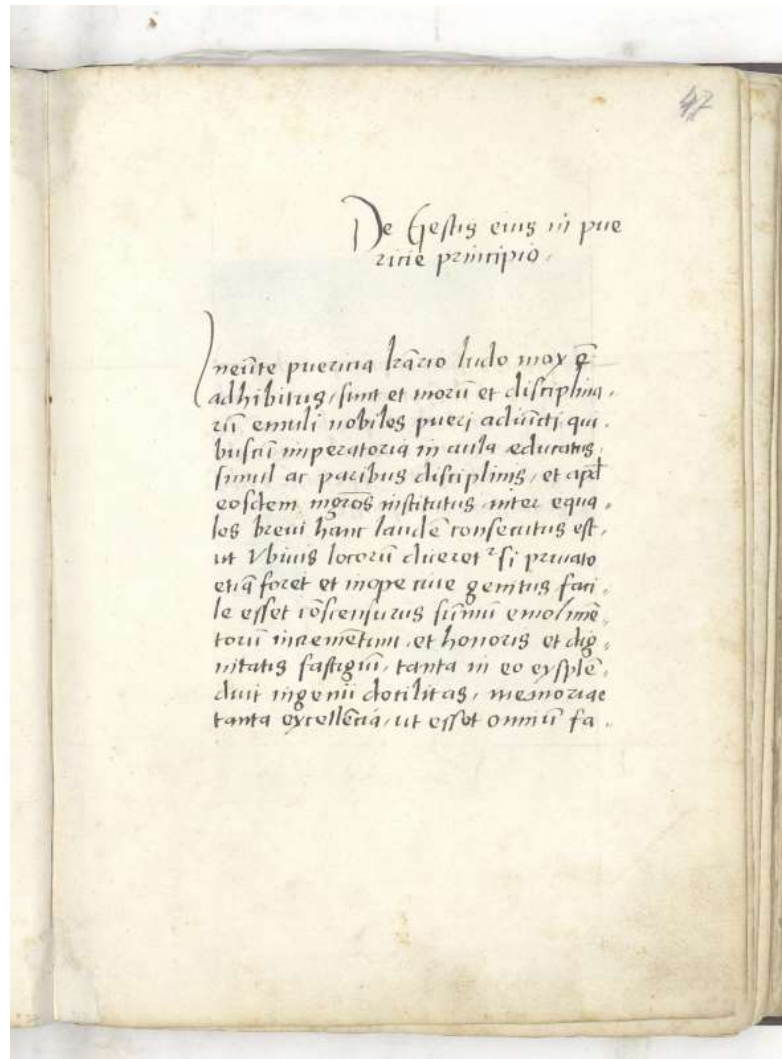 47
De Gestis eius in pue
ricie principio,
Ineūte puericia lrārio ludo mox ē
adhibitus, sunt et morū et disciplina,
rū emuli nobiles pueri adiūcti qui,
buscū imperatoria in aula educatus,
simul ac paribus disciplinis, et apd
eosdem mgros institutus, inter equa,
les brevi hanc laudē consecutus est,
ut Vbivis locorū diceret si privato
etiā foret et inope cive genitus faci,
le esset cōscensurus sūmū emolimē,
torū incremētum, et honoris et dig,
nitatis fastigiū, tanta in eo exsplē,
duit ingenii docilitas, memoriae
tanta excellēcia, ut esset omniū fa,